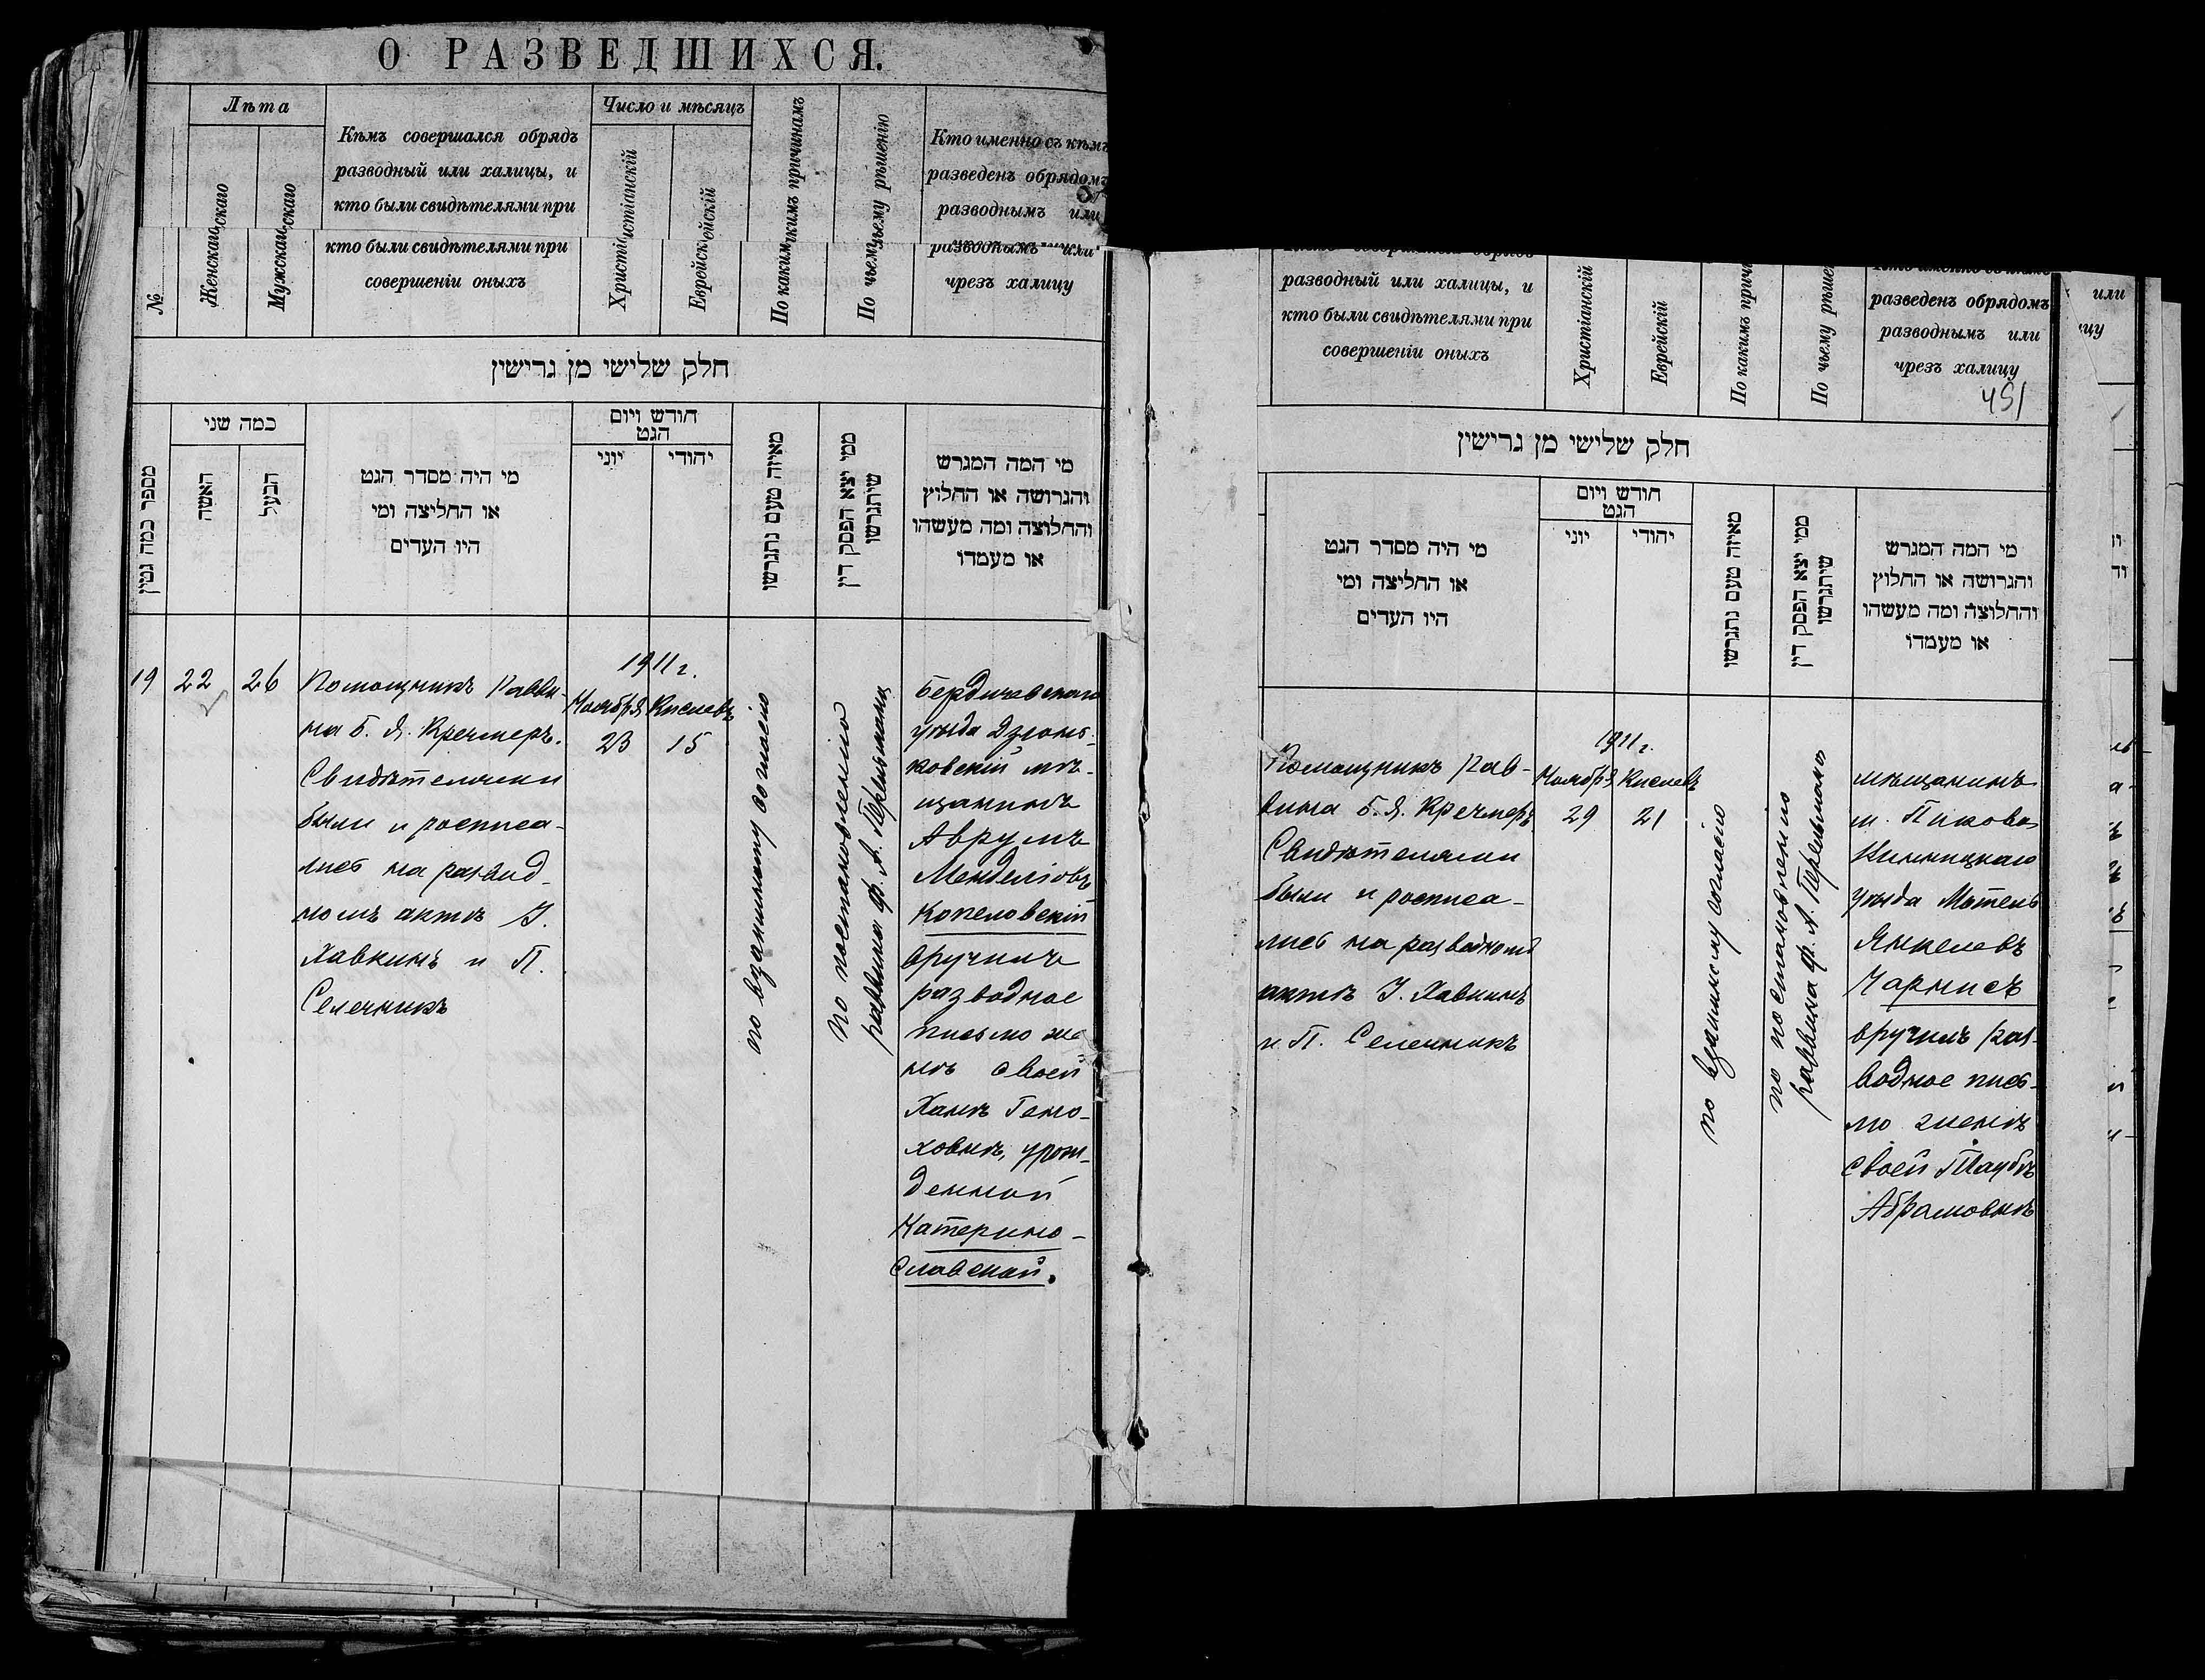 О РАЗВЕДШИХСЯ.
Лѣта
Число и мѣсяцъ
Кѣмъ совершался обрядъ
разводный или халицы, и
кто были свидѣтелями при
кто были свидѣтелями при
совершеніи оныхъ
№
Женскаго
Мужскаго
Христіанскій
Еврейскій
По какимъ причинамъ
По чьему рѣшенію
Кто именно съ кѣмъ
разведенъ обрядомъ
разводнымъ или
разводнымъ или
чрезъ халицу
חלק שלישי מן גרישין
מספר כמה גטין
כמה שני
האשה
הבעל
מי היה מסדר הגט
או החליצה ומי
היו העדים
חודש ויום
הגט
יוני
יהודי
מאיזה טעם נתגרשו
ממי יצא הפסק דין
שיתגרשו
מי המה המגרש
והגרושה או החלוץ
והחלוצה ומה מעשהו
או מעמדו
19
22
26
Помощникъ Равви-
на Б. Я. Кречмеръ.
Свидѣтелями
были и росписа-
лись на развод-
номъ актѣ I.
Хавкинъ и П.
Селечникъ
1911 г.
Ноября Кислевъ
23 15
по взаимному согласію
по постановленію
раввина Ф. А. Перельмана
Бердичевскаго
уѣзда Дзюнь-
ковскій мѣ-
щанинъ
Аврумъ
Менделіовъ
Копеловскій
вручилъ
разводное
письмо же
нѣ своей
Ханѣ Гено-
ховнѣ, урож-
денной
Катерино-
славской.
разводный или халицы, и
кто были свидѣтелями при
совершеніи оныхъ
Христіанскій
Еврейскій
По какимъ прич
По чьему рѣше
разведенъ обрядомъ
разводнымъ или
чрезъ халицу
451
или
цу
חלק שלישי מן גרישין
מי היה מסדר הגט
או החליצה ומי
היו העדים
חודש ויום
הגט
יוני
יהודי
מאיזה טעם נתגרשו
ממי יצא הפסק דין
שיתגרשו
מי המה המגרש
והגרושה או החלוץ
והחלוצה ומה מעשהו
או מעמדו
Помощникъ Рав-
вина Б. Я. Кречмеръ
Свидѣтелями
были и росписа-
лись на разводномъ
актѣ I. Хавкинъ
и П. Селечникъ
1911 г.
Ноября Кислевъ
29 21
по взаимному согласію
по постановленію
раввина Ф. А. Перельмана
мѣщанинъ
м. Пикова
Винницкаго
уѣзда Мотель
Янкелевъ
Чарнисъ
вручилъ раз-
водное пись-
мо женѣ
своей Таубѣ
Абрамовнѣ